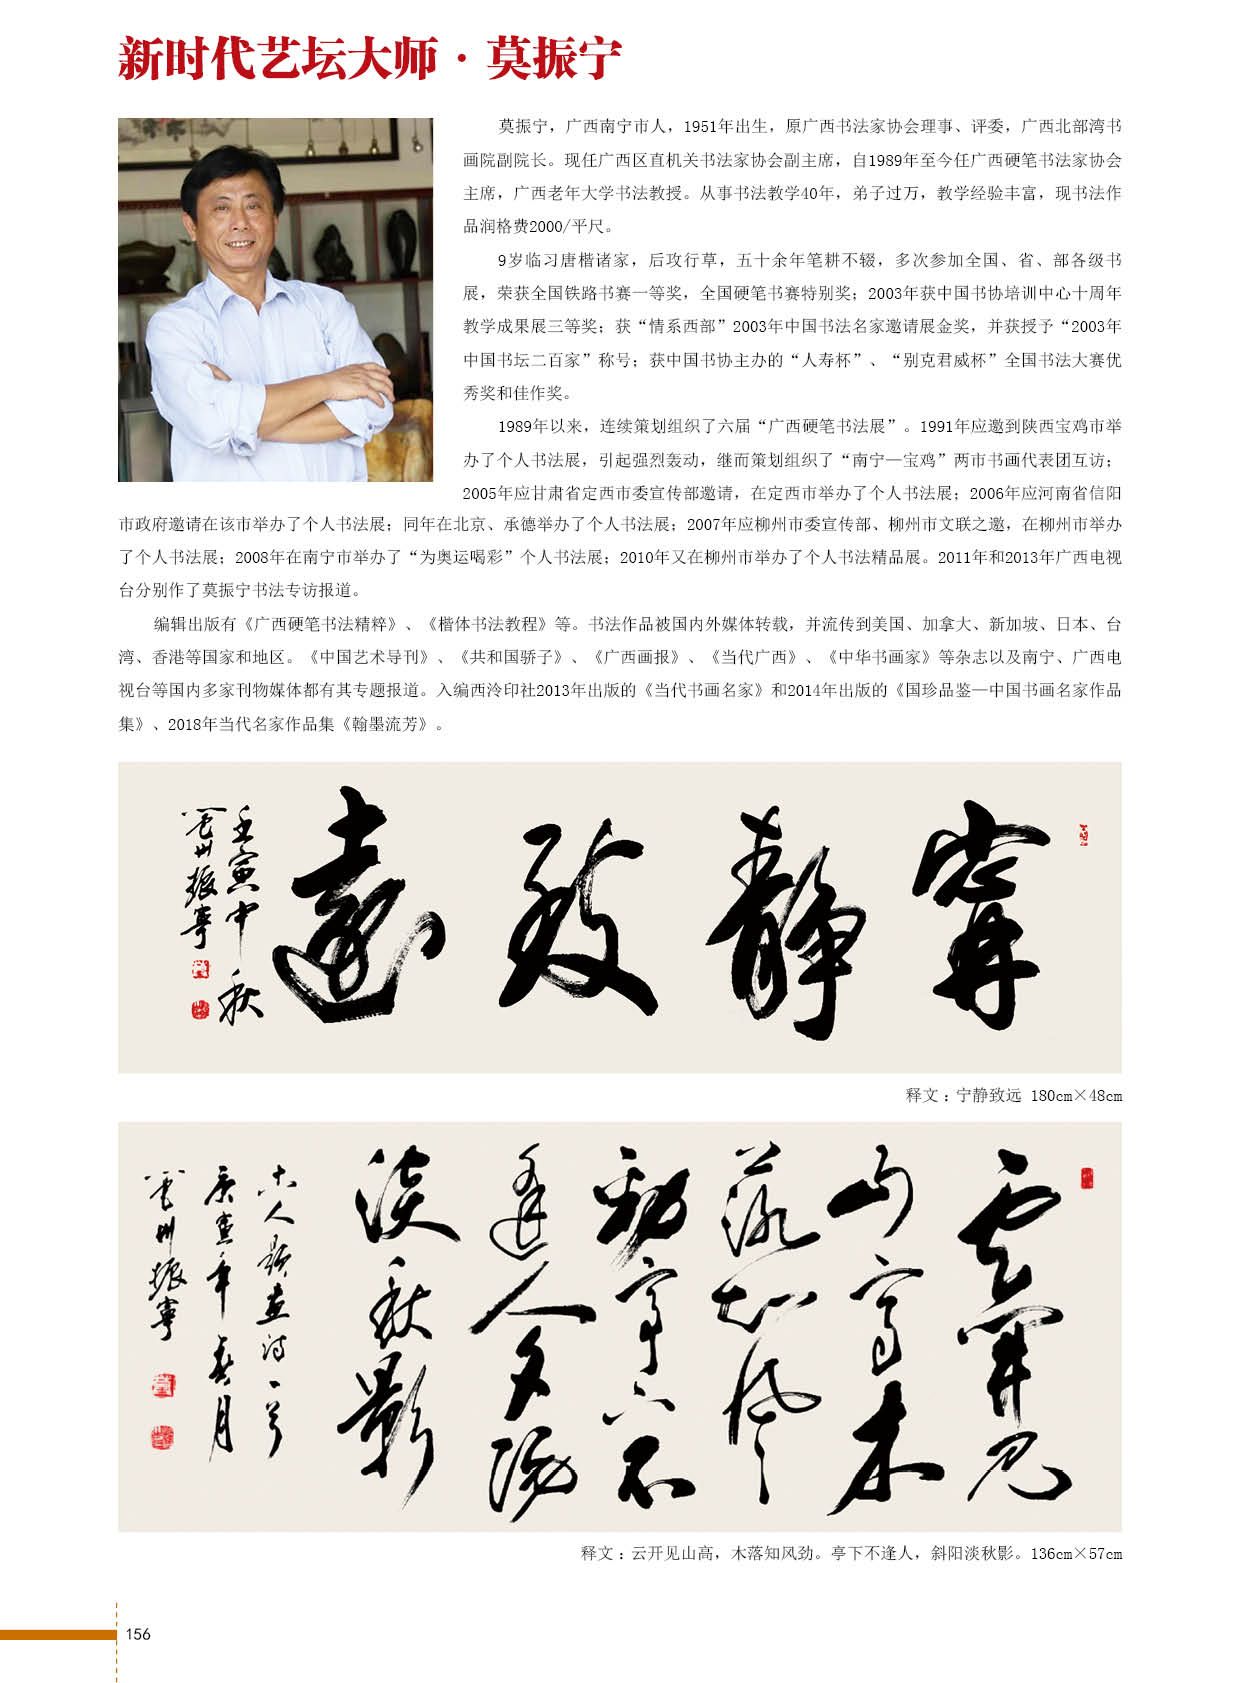 新时代艺坛大师·莫振宁
莫振宁，广西南宁市人，1951年出生，原广西书法家协会理事、评委，广西北部湾书
画院副院长。现任广西区直机关书法家协会副主席，自1989年至今任广西硬笔书法家协会
主席，广西老年大学书法教授。从事书法教学40年，弟子过万，教学经验丰富，现书法作
品润格费2000/平尺。
9岁临习唐楷诸家，后攻行草，五十余年笔耕不辍，多次参加全国、省、部各级书
展，荣获全国铁路书赛一等奖，全国硬笔书赛特别奖；2003年获中国书协培训中心十周年
教学成果展三等奖；获“情系西部”2003年中国书法名家邀请展金奖，并获授予“2003年
中国书坛二百家”称号；获中国书协主办的“人寿杯”、“别克君威杯”全国书法大赛优
秀奖和佳作奖。
1989年以来，连续策划组织了六届“广西硬笔书法展”。1991年应邀到陕西宝鸡市举
办了个人书法展，引起强烈轰动，继而策划组织了“南宁—宝鸡”两市书画代表团互访；
2005年应甘肃省定西市委宣传部邀请，在定西市举办了个人书法展；2006年应河南省信阳
市政府邀请在该市举办了个人书法展；同年在北京、承德举办了个人书法展；2007年应柳州市委宣传部、柳州市文联之邀，在柳州市举办
了个人书法展；2008年在南宁市举办了“为奥运喝彩”个人书法展；2010年又在柳州市举办了个人书法精品展。2011年和2013年广西电视
台分别作了莫振宁书法专访报道。
编辑出版有《广西硬笔书法精粹》、《楷体书法教程》等。书法作品被国内外媒体转载，并流传到美国、加拿大、新加坡、日本、台
湾、香港等国家和地区。《中国艺术导刊》、《共和国骄子》、《广西画报》、《当代广西》、《中华书画家》等杂志以及南宁、广西电
视台等国内多家刊物媒体都有其专题报道。入编西泠印社2013年出版的《当代书画名家》和2014年出版的《国珍品鉴—中国书画名家作品
集》、2018年当代名家作品集《翰墨流芳》。
寧靜致遠
壬寅中秋
雲州振寧
释文：宁静致远 180cm×48cm
雲開見
山高木
落知風
勁亭下不
逢人夕陽
淡秋影
古人題畫詩一首
庚寅年春月
雲州振寧
释文：云开见山高，木落知风劲。亭下不逢人，斜阳淡秋影。136cm×57cm
156